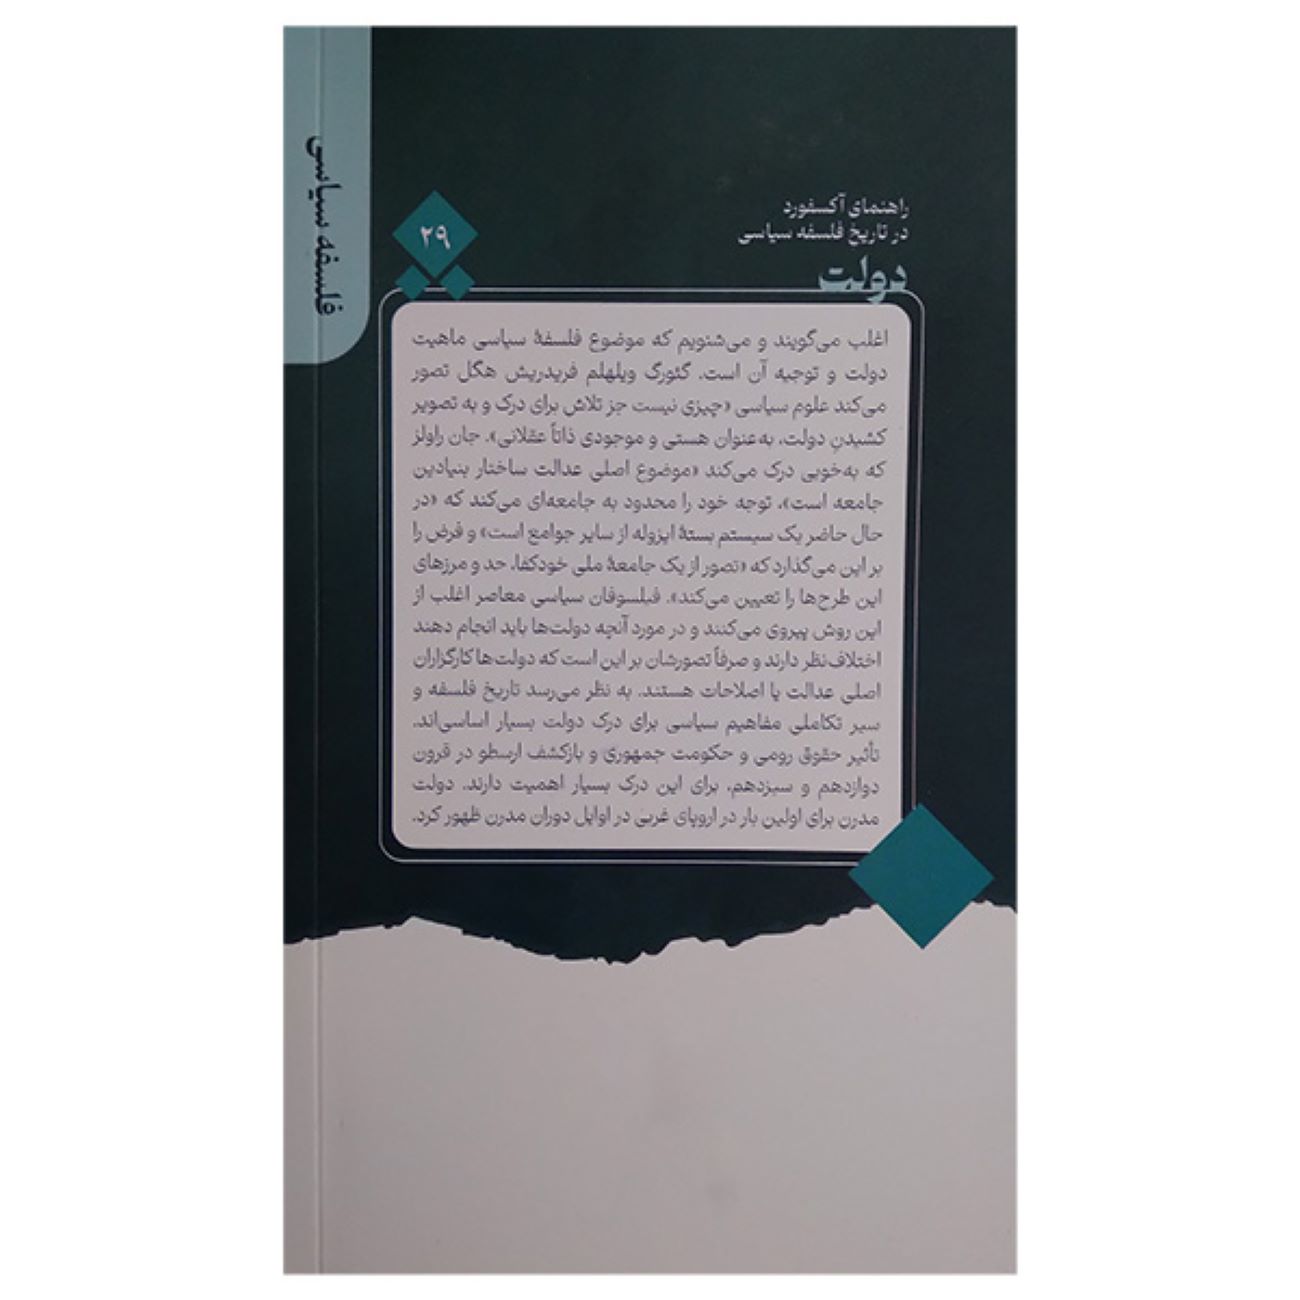 فلسفه سیاسی
راهنمای آکسفورد
در تاریخ فلسفه سیاسی
دولت
۲۹
اغلب می‌گویند و می‌شنویم که موضوع فلسفهٔ سیاسی ماهیت
دولت و توجیه آن است. گئورگ ویلهلم فریدریش هگل تصور
می‌کند علوم سیاسی «چیزی نیست جز تلاش برای درک و به تصویر
کشیدنِ دولت، به‌عنوان هستی و موجودی ذاتاً عقلانی». جان راولز
که به‌خوبی درک می‌کند «موضوع اصلی عدالت ساختار بنیادین
جامعه است»، توجه خود را محدود به جامعه‌ای می‌کند که «در
حال حاضر یک سیستم بستهٔ ایزوله از سایر جوامع است» و فرض را
بر این می‌گذارد که «تصور از یک جامعهٔ ملی خودکفا، حد و مرزهای
این طرح‌ها را تعیین می‌کند». فیلسوفان سیاسی معاصر اغلب از
این روش پیروی می‌کنند و در مورد آنچه دولت‌ها باید انجام دهند
اختلاف‌نظر دارند و صرفاً تصورشان بر این است که دولت‌ها کارگزاران
اصلی عدالت یا اصلاحات هستند. به نظر می‌رسد تاریخ فلسفه و
سیر تکاملی مفاهیم سیاسی برای درک دولت بسیار اساسی‌اند.
تأثیر حقوق رومی و حکومت جمهوری و بازکشف ارسطو در قرون
دوازدهم و سیزدهم، برای این درک بسیار اهمیت دارند. دولت
مدرن برای اولین بار در اروپای غربی در اوایل دوران مدرن ظهور کرد.